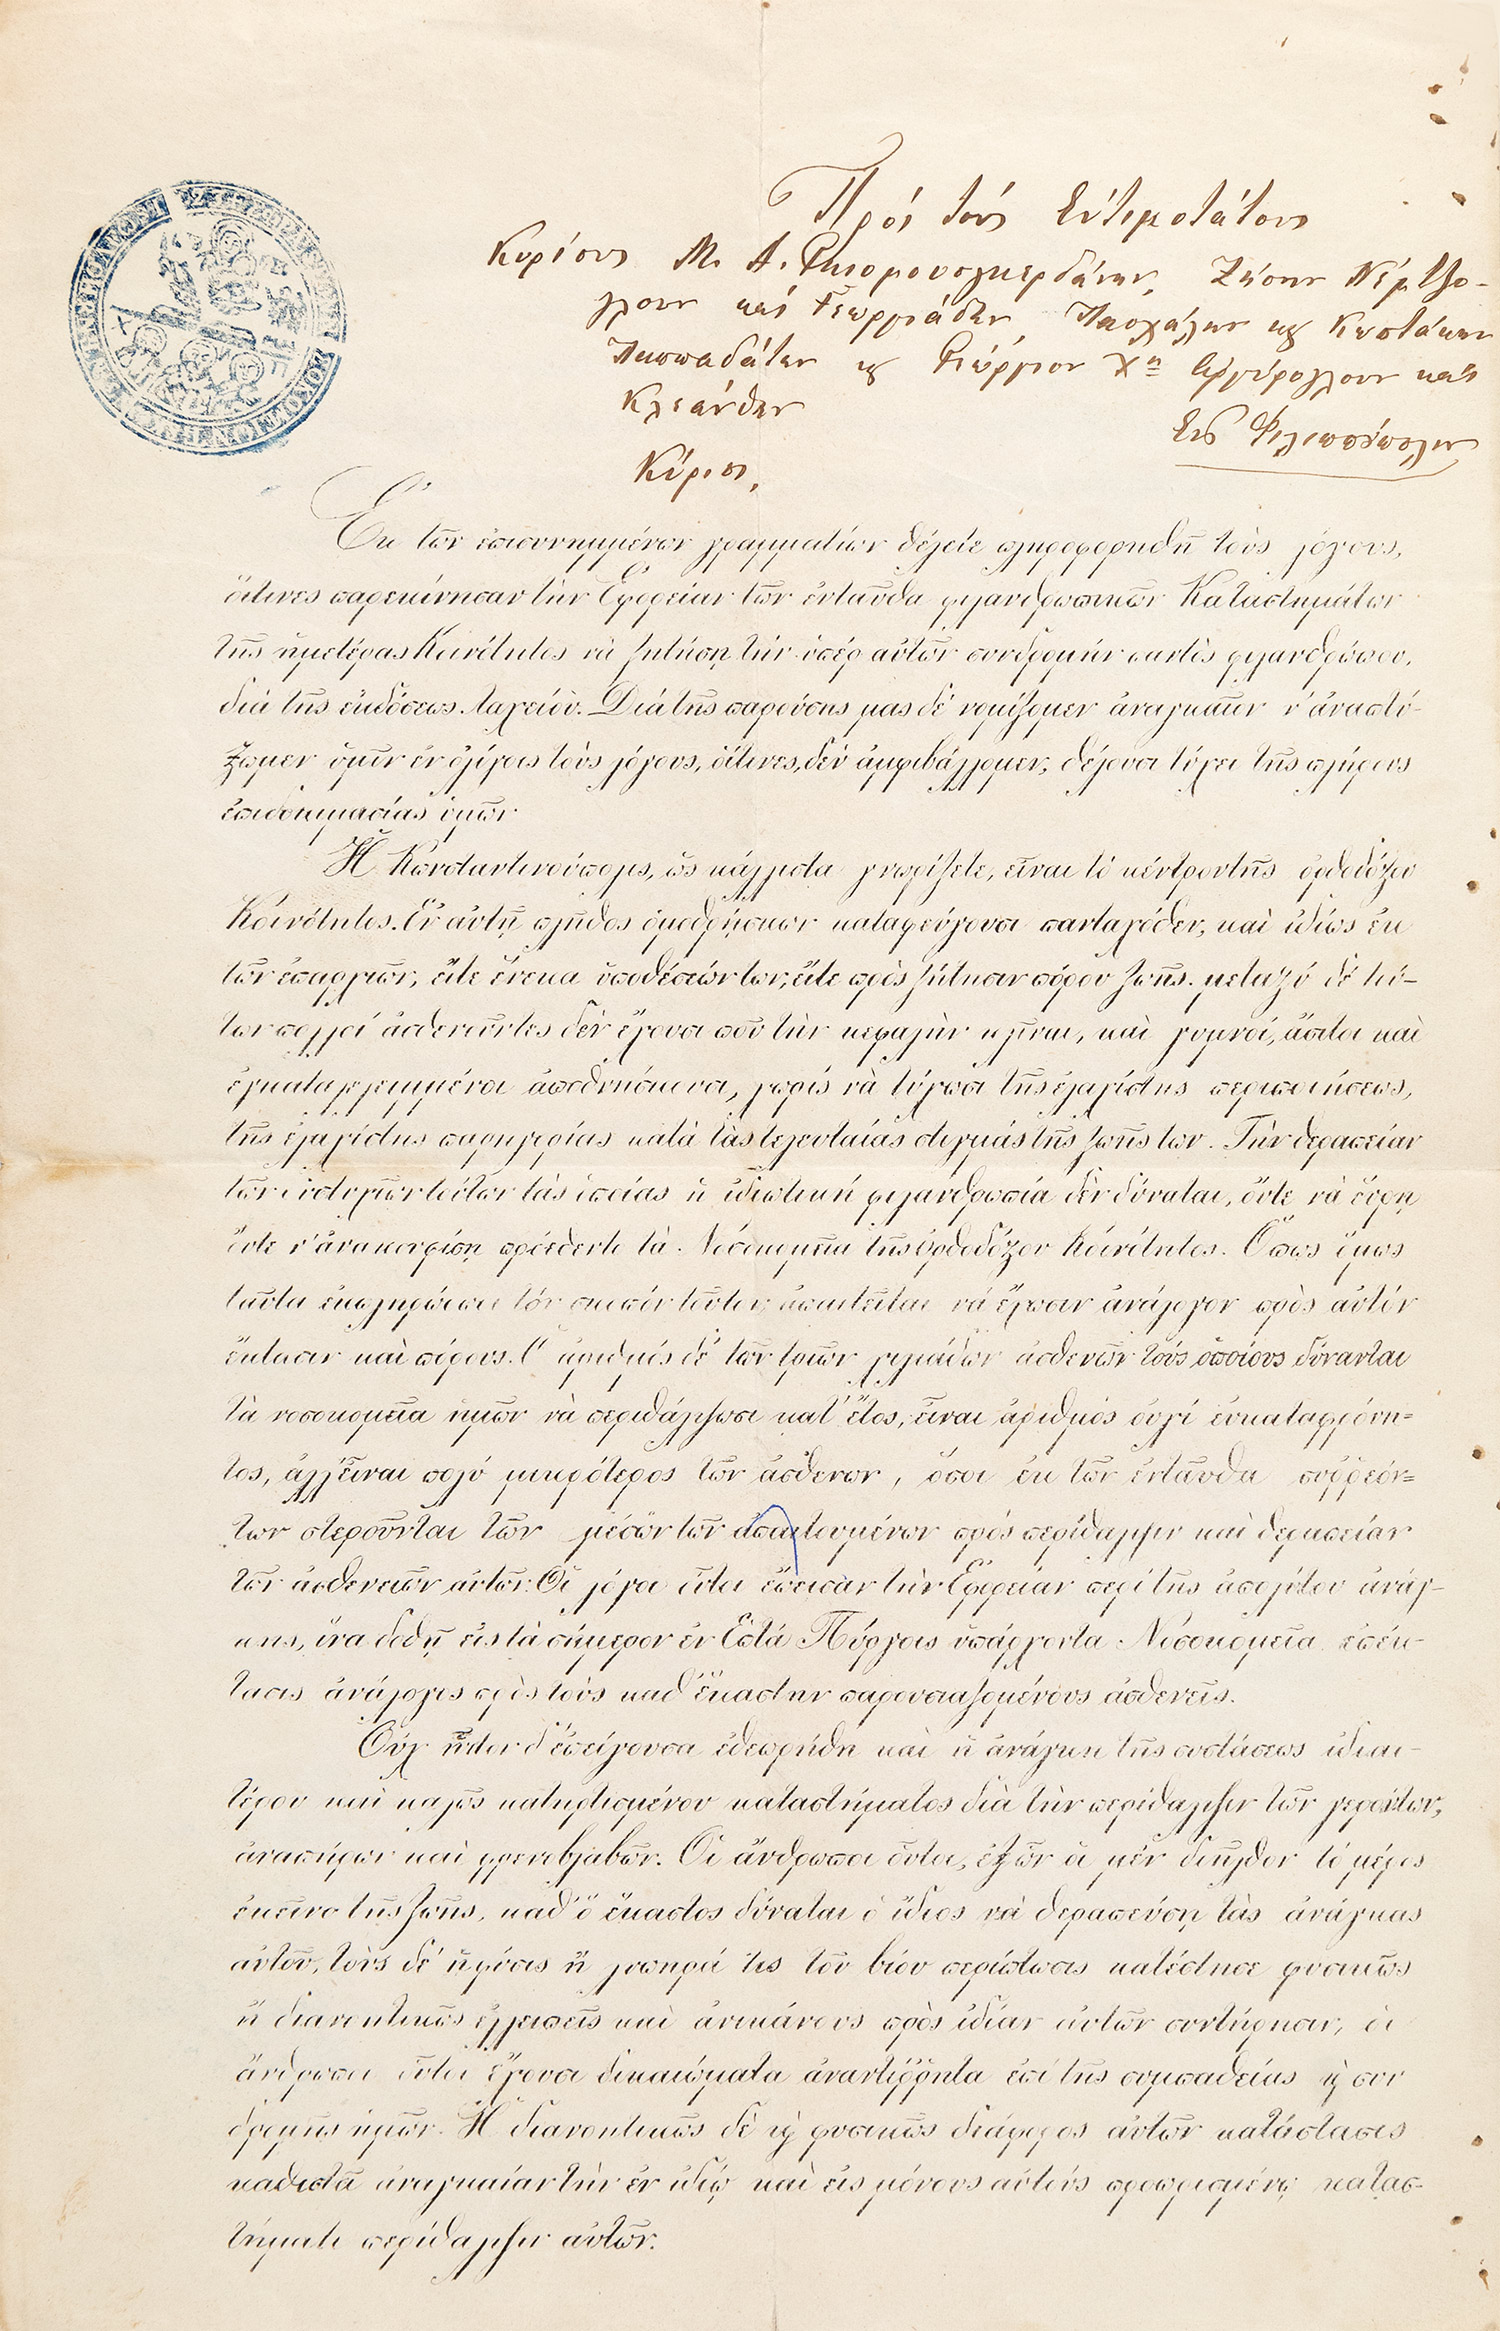 Πρὸς τοὺς Ἐντιμοτάτους
Κυρίους Μ. Α. Γκιουμουσγκερδάνην, Ζώσην Νέμτζο-
γλουν καὶ Γεωργιάδην, Πασχάλην καὶ Κωστάκην
Παππαδάτην καὶ Γεώργιον Χη Ἀργύρογλουν καὶ
Κλεάνθην
Εἰς Φιλιππούπολιν
Κύριοι,
Ἐκ τῶν ἐπισυνημμένων γραμματίων θέλετε πληροφορηθῆ τοὺς λόγους,
οἵτινες παρεκίνησαν τὴν Ἐφορείαν τῶν ἐνταῦθα φιλανθρωπικῶν Καταστημάτων
τῆς ἡμετέρας Κοινότητος νὰ ζητήσῃ τὴν ὑπὲρ αὐτῶν συνδρομὴν παντὸς φιλανθρώπου,
διὰ τῆς ἐκδόσεως λαχείου. Διὰ τῆς παρούσης μας δὲ νομίζομεν ἀναγκαῖον ν' ἀναπτύ-
ξωμεν ὑμῖν ἐν ὀλίγοις τοὺς λόγους, οἵτινες, δὲν ἀμφιβάλλομεν, θέλουσι τύχει τῆς πλήρους
ἐπιδοκιμασίας ὑμῶν.
Ἡ Κωνσταντινούπολις, ὡς κάλλιστα γνωρίζετε, εἶναι τὸ κέντρον τῆς ὀρθοδόξου
Κοινότητος. Ἐν αὐτῇ πλῆθος ὁμοθρήσκων καταφεύγουσι πανταχόθεν, καὶ ἰδίως ἐκ
τῶν ἐπαρχιῶν, εἴτε ἕνεκα ὑποθέσεών των, εἴτε πρὸς ζήτησιν πόρου ζωῆς. μεταξὺ δὲ τού-
των πολλοί ἀσθενοῦντες δὲν ἔχουσι ποῦ τὴν κεφαλὴν κλῖναι, καὶ γυμνοί, ἄσιτοι καὶ
ἐγκαταλελειμμένοι ἀποθνήσκουσι, χωρὶς νὰ τύχωσι τῆς ἐλαχίστης περιποιήσεως,
τῆς ἐλαχίστης παρηγορίας κατὰ τὰς τελευταίας στιγμὰς τῆς ζωῆς των. Τὴν θεραπείαν
τῶν δυστυχιῶν τούτων τὰς ὁποίας ἡ ἰδιωτικὴ φιλανθρωπία δὲν δύναται, οὔτε νὰ εὕρῃ
οὔτε ν' ἀνακουφίσῃ προέθεντο τὰ Νοσοκομεῖα τῆς Ὀρθοδόξου Κοινότητος. Ὅπως ὅμως
ταῦτα ἐκπληρώσωσι τὸν σκοπὸν τοῦτον, ἀπαιτεῖται νὰ ἔχωσιν ἀνάλογον πρὸς αὐτὸν
ἔκτασιν καὶ πόρους. Ὁ ἀριθμὸς δὲ τῶν τριῶν χιλιάδων ἀσθενῶν τοὺς ὁποίους δύνανται
τὰ νοσοκομεῖα ἡμῶν νὰ περιθάλψωσι κατ' ἔτος, εἶναι ἀριθμὸς οὐχὶ εὐκαταφρόνη=
τος, ἀλλ' εἶναι πολὺ μικρότερος τῶν ἀσθενῶν, ὅσοι ἐκ τῶν ἐνταῦθα συῤῥεόν=
των στεροῦνται τῶν μέσων τῶν ἀπαιτουμένων πρὸς περίθαλψιν καὶ θεραπείαν
τῶν ἀσθενειῶν αὐτῶν. Οἱ λόγοι οὗτοι ἔπεισαν τὴν Ἐφορείαν περὶ τῆς ἀπολύτου ἀνάγ-
κης, ἵνα δοθῇ εἰς τὰ σήμερον ἐν Ἑπτὰ Πύργοις ὑπάρχοντα Νοσοκομεῖα ἐπέκ-
τασις ἀνάλογος πρὸς τοὺς καθ' ἑκάστην παρουσιαζομένους ἀσθενεῖς.
Οὐχ ἧττον δ' ἐπείγουσα ἐθεωρήθη καὶ ἡ ἀνάγκη τῆς συστάσεως ἰδιαι-
τέρου καὶ καλῶς κατηρτισμένου καταστήματος διὰ τὴν περίθαλψιν τῶν γερόντων,
ἀναπήρων καὶ φρενοβλαβῶν. Οἱ ἄνθρωποι οὗτοι, ἐξ ὧν οἱ μὲν διῆλθον τὸ μέρος
ἐκεῖνο τῆς ζωῆς, καθ' ὃ ἕκαστος δύναται ὁ ἴδιος νὰ θεραπεύσῃ τὰς ἀνάγκας
αὐτοῦ, τοὺς δὲ ἡ φύσις ἢ λυπηρά τις τοῦ βίου περίπτωσις κατέστησε φυσικῶς
ἢ διανοητικῶς ἐλλειπεῖς καὶ ἀνικάνους πρὸς ἰδίαν αὐτῶν συντήρησιν, οἱ
ἄνθρωποι οὗτοι ἔχουσι δικαιώματα ἀναντίῤῥητα ἐπὶ τῆς συμπαθείας καὶ συν
δρομῆς ἡμῶν. Ἡ διανοητικῶς δὲ καὶ φυσικῶς διάφορος αὐτῶν κατάστασις
καθιστᾷ ἀναγκαίαν τὴν ἐν ἰδίῳ καὶ εἰς μόνους αὐτοὺς προωρισμένῳ κατασ-
τήματι περίθαλψιν αὐτῶν.